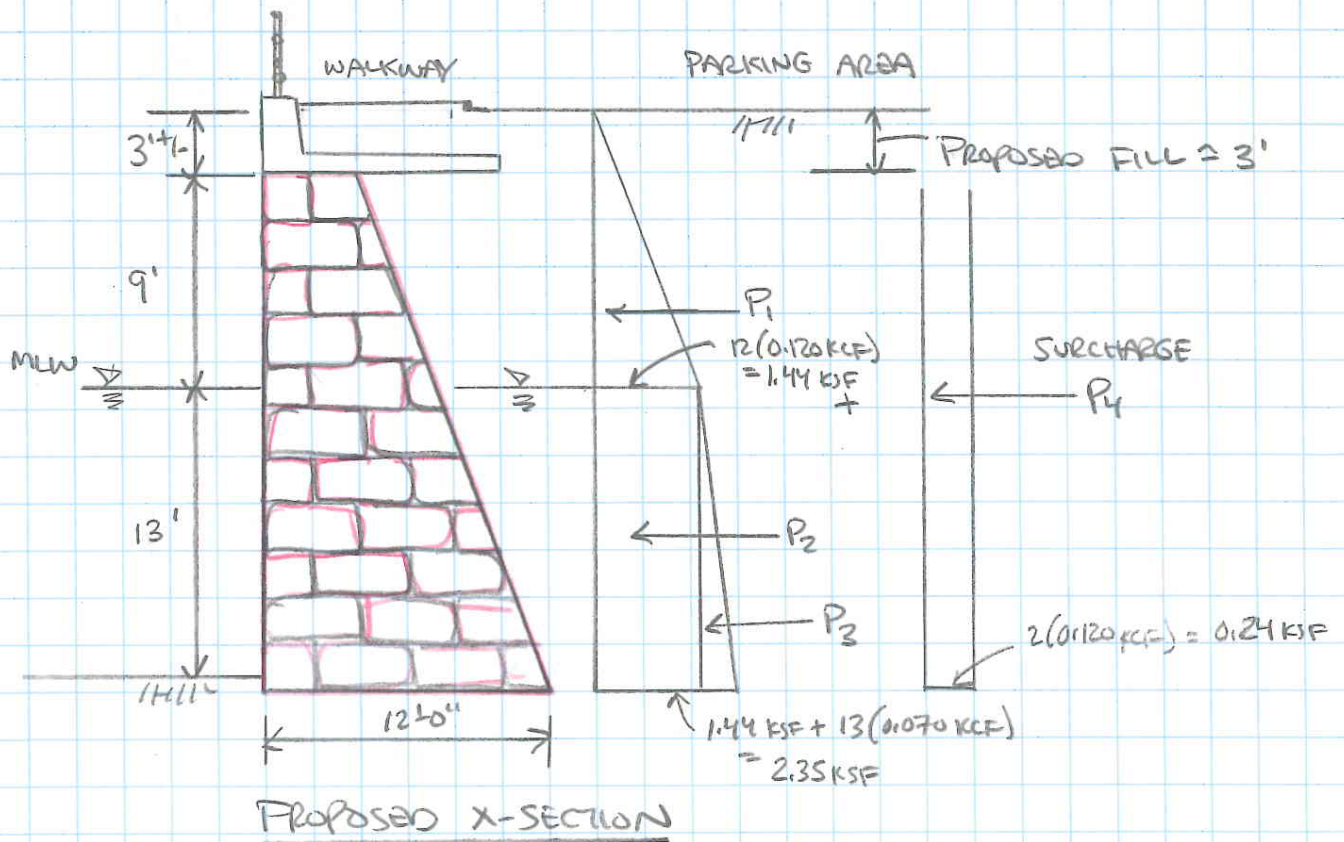 WALKWAY
PARKING AREA
3'+/-
PROPOSED FILL = 3'
9'
P1
12(0.120 KCF)
= 1.44 KSF
SURCHARGE
MLW
+
P4
13'
P2
P3
2(0.120 KCF) = 0.24 KSF
12'-0"
1.44 KSF + 13(0.070 KCF)
= 2.35 KSF
PROPOSED X-SECTION